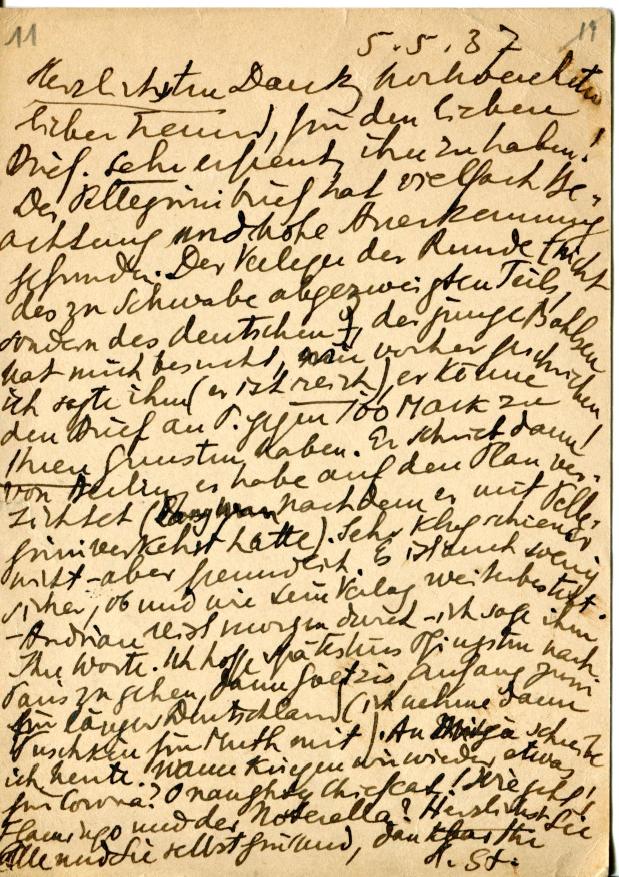 11 19
5.5.37
Herzlichsten Dank, hochverehrter
lieber Freund, für den lieben
Brief. Sehr erfreut, ihn zu haben!
Der Pellegrinibrief hat vielfach Be-
achtung und hohe Anerkennung
gefunden. Der Verleger der Runde (nicht
des zu Schwabe abgezweigten Teils,
sondern des deutschen), der junge Bahlsen
hat mich besucht, vorher geschrieben
ich sagte ihm (er ist reich), er könne
den Brief an P. gegen 100 Mark zu
Ihren Gunsten haben. Er schrieb dann
von Berlin, er habe auf den Plan ver-
zichtet (nachdem er mit Pelle-
grini verkehrt hatte). Sehr klug schien er
nicht – aber freundlich. Es ist auch wenig
sicher, ob und wie sein Verlag weiterbesteht.
– Andrian reist morgen durch – ich sage ihm
Ihre Worte. Ich hoffe spätestens Pfingsten nach
Paris zu gehen, dann Goetzis, anfang Juni
für länger Deutschland (ich nehme dann
Puschkin für Muth mit). An schreibe
ich heute. Wann kriegen wir wieder etwas
für Corona? O naughty Chiefcat! Wie geht's
Flamingo und der Noterella? Herzlichst Sie
alle und Sie selbst grüßend, dankbar Ihr
H. St.